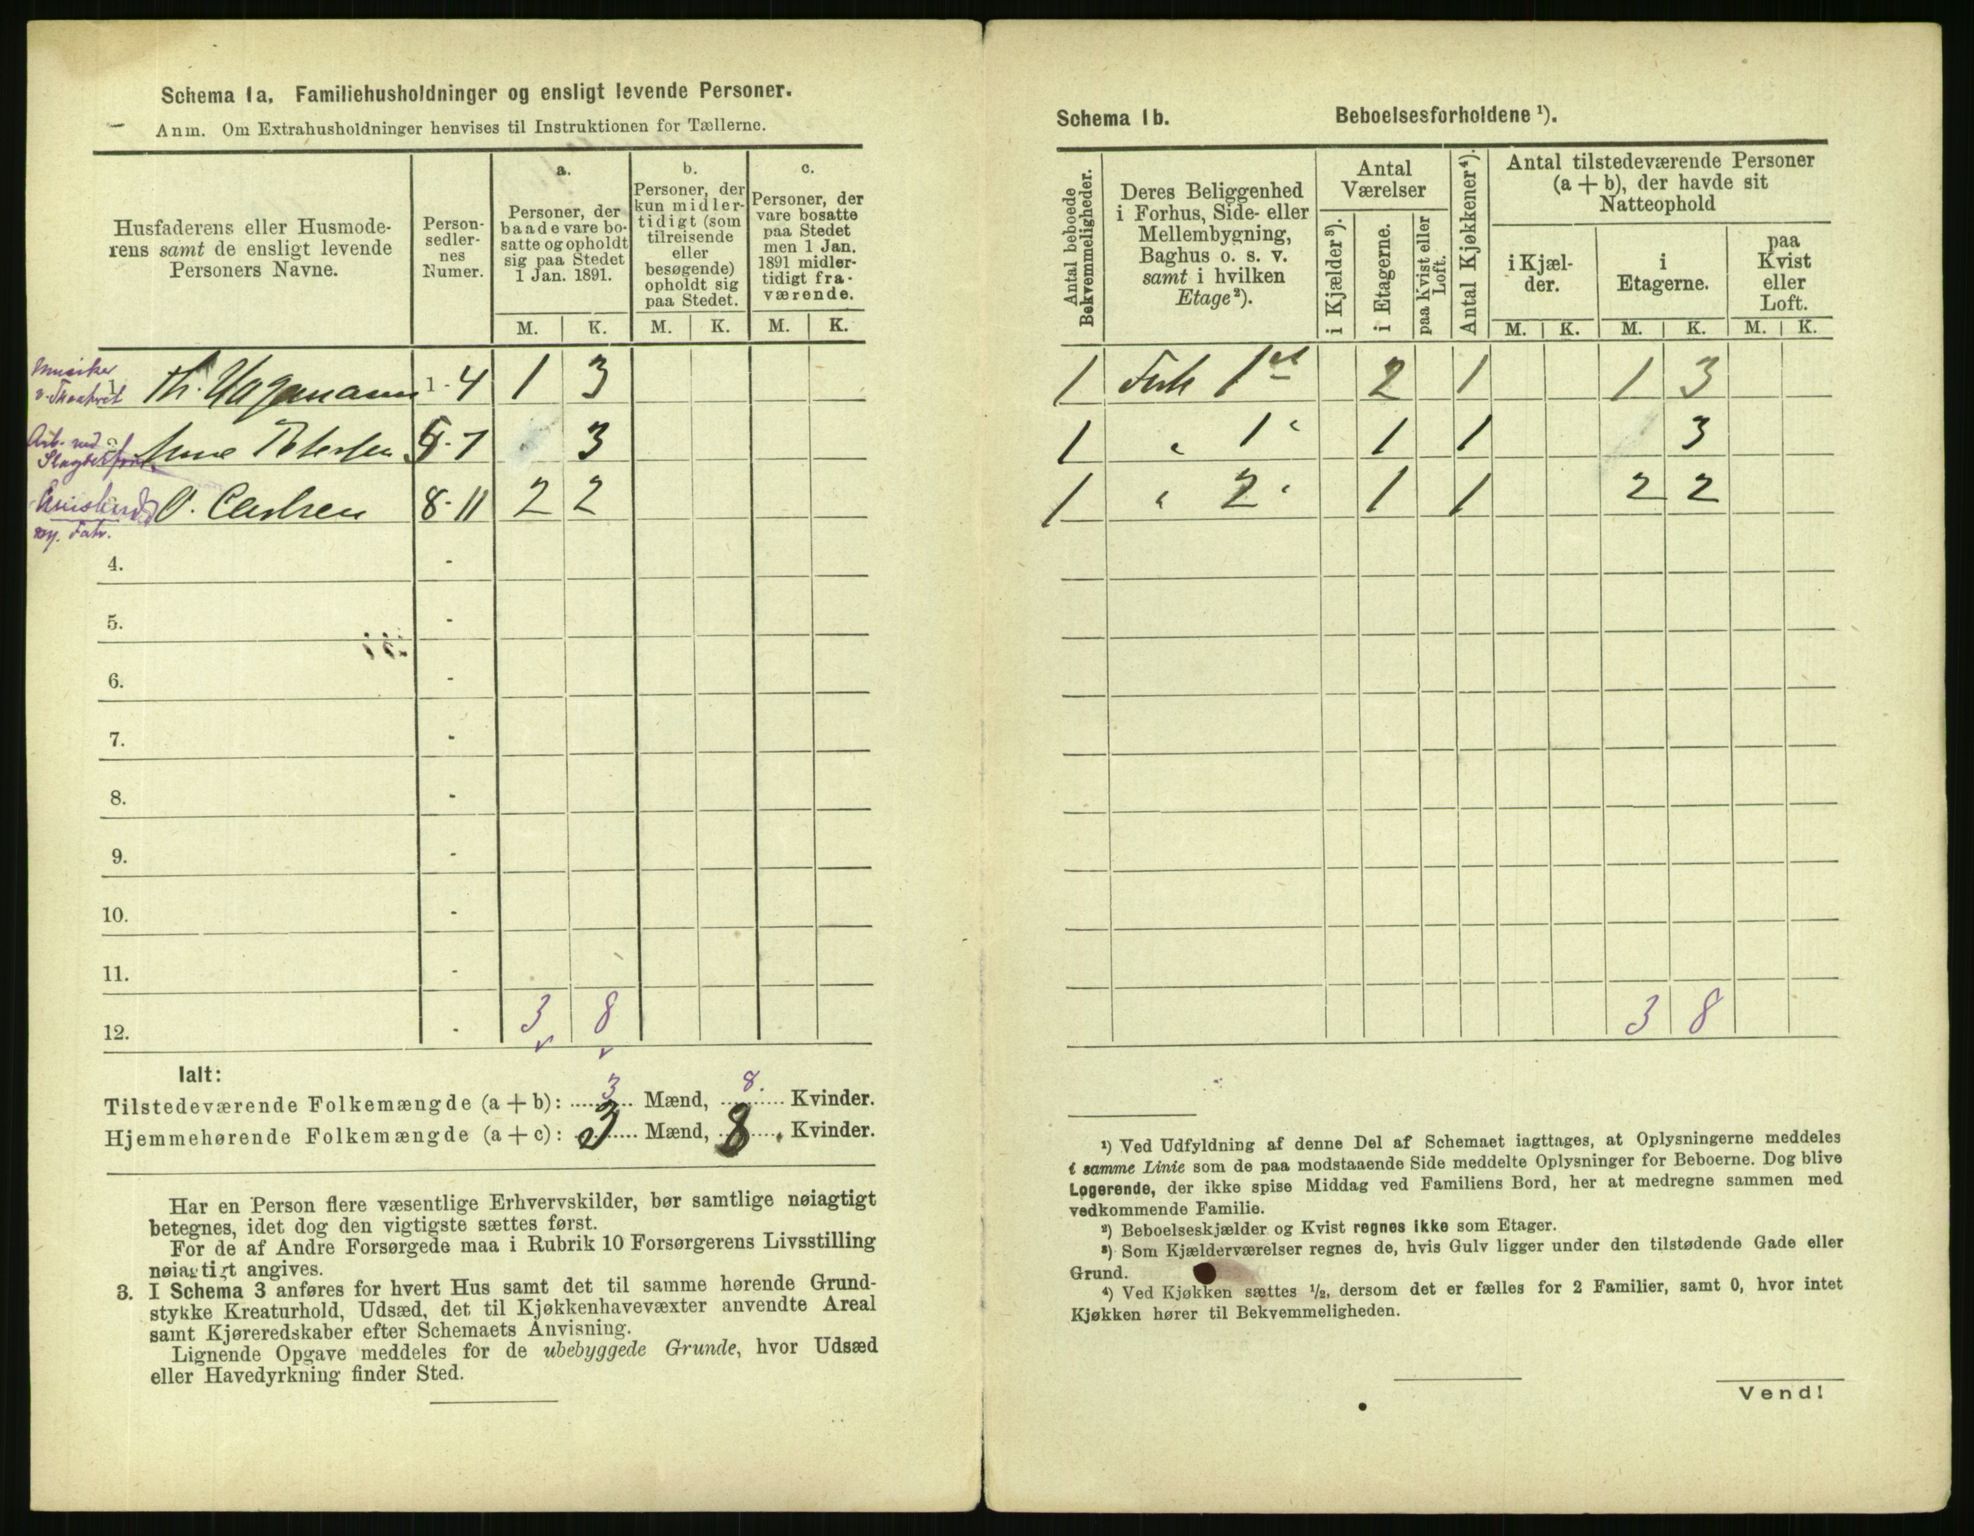 Schema 1a. Familiehusholdninger og ensligt levende Personer.
Anm. Om Extrahusholdninger henvises til Instruktionen for Tællerne.
Husfaderens eller Husmode-
rens samt de ensligt levende
Personers Navne.
Person-
sedler-
nes
Numer.
a.
Personer, der
baade vare bo-
satte og opholdt
sig paa Stedet
1 Jan. 1891.
b.
Personer, der
kun midler-
tidigt (som
tilreisende
eller
besøgende)
opholdt sig
paa Stedet.
c.
Personer, der
vare bosatte
paa Stedet
men 1 Jan.
1891 midler-
tidigt fra-
værende.
M. K. M. K. M. K.
Musiker
Th. Hagemann 1-4 1 3
Arb. ved
Anne Petersen 5-7 3
O. Carlsen 8-11 2 2
4. -
5. -
6. -
7. -
8. -
9. -
10. -
11. -
12. - 3 8
Ialt:
Tilstedeværende Folkemængde (a + b): 3 Mænd, 8. Kvinder.
Hjemmehørende Folkemængde (a + c): 3 Mænd, 8. Kvinder.
Har en Person flere væsentlige Erhvervskilder, bør samtlige nøiagtigt
betegnes, idet dog den vigtigste sættes først.
For de af Andre Forsørgede maa i Rubrik 10 Forsørgerens Livsstilling
nøiagtigt angives.
3. I Schema 3 anføres for hvert Hus samt det til samme hørende Grund-
stykke Kreaturhold, Udsæd, det til Kjøkkenhavevæxter anvendte Areal
samt Kjøreredskaber efter Schemaets Anvisning.
Lignende Opgave meddeles for de ubebyggede Grunde, hvor Udsæd
eller Havedyrkning finder Sted.
Schema 1b. Beboelsesforholdene ¹).
Antal beboede
Bekvemmeligheder.
Deres Beliggenhed
i Forhus, Side- eller
Mellembygning,
Baghus o. s. v.
samt i hvilken
Etage²).
Antal
Værelser
i Kjælder³).
i Etagerne.
paa Kvist eller
Loft.
Antal Kjøkkener⁴).
Antal tilstedeværende Personer
(a + b), der havde sit
Natteophold
i Kjæl-
der.
i
Etagerne.
paa
Kvist
eller
Loft.
M. K. M. K. M. K.
1 1 2 1 1 3
1 " 1 " 1 1 3
1 " 2 " 1 1 2 2
3 8
¹) Ved Udfyldning af denne Del af Schemaet iagttages, at Oplysningerne meddeles
i samme Linie som de paa modstaaende Side meddelte Oplysninger for Beboerne. Dog blive
Logerende, der ikke spise Middag ved Familiens Bord, her at medregne sammen med
vedkommende Familie.
²) Beboelseskjælder og Kvist regnes ikke som Etager.
³) Som Kjælderværelser regnes de, hvis Gulv ligger under den tilstødende Gade eller
Grund.
⁴) Ved Kjøkken sættes ½, dersom det er fælles for 2 Familier, samt 0, hvor intet
Kjøkken hører til Bekvemmeligheden.
Vend!